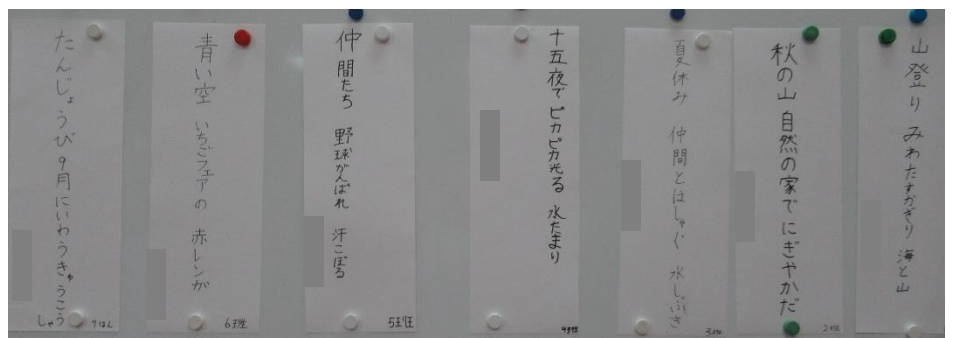 山登り みわたすかぎり 海と山
秋の山 自然の家で にぎやかだ
2班
夏休み 仲間とはしゃぐ 水しぶき
3班
十五夜で ピカピカ光る 水たまり
4班
仲間たち 野球がんばれ 汗こぼる
5班
青い空 いちごフェアの 赤レンガ
6班
たんじょうび 9月にいわう きゅうこう
しゃう
7はん